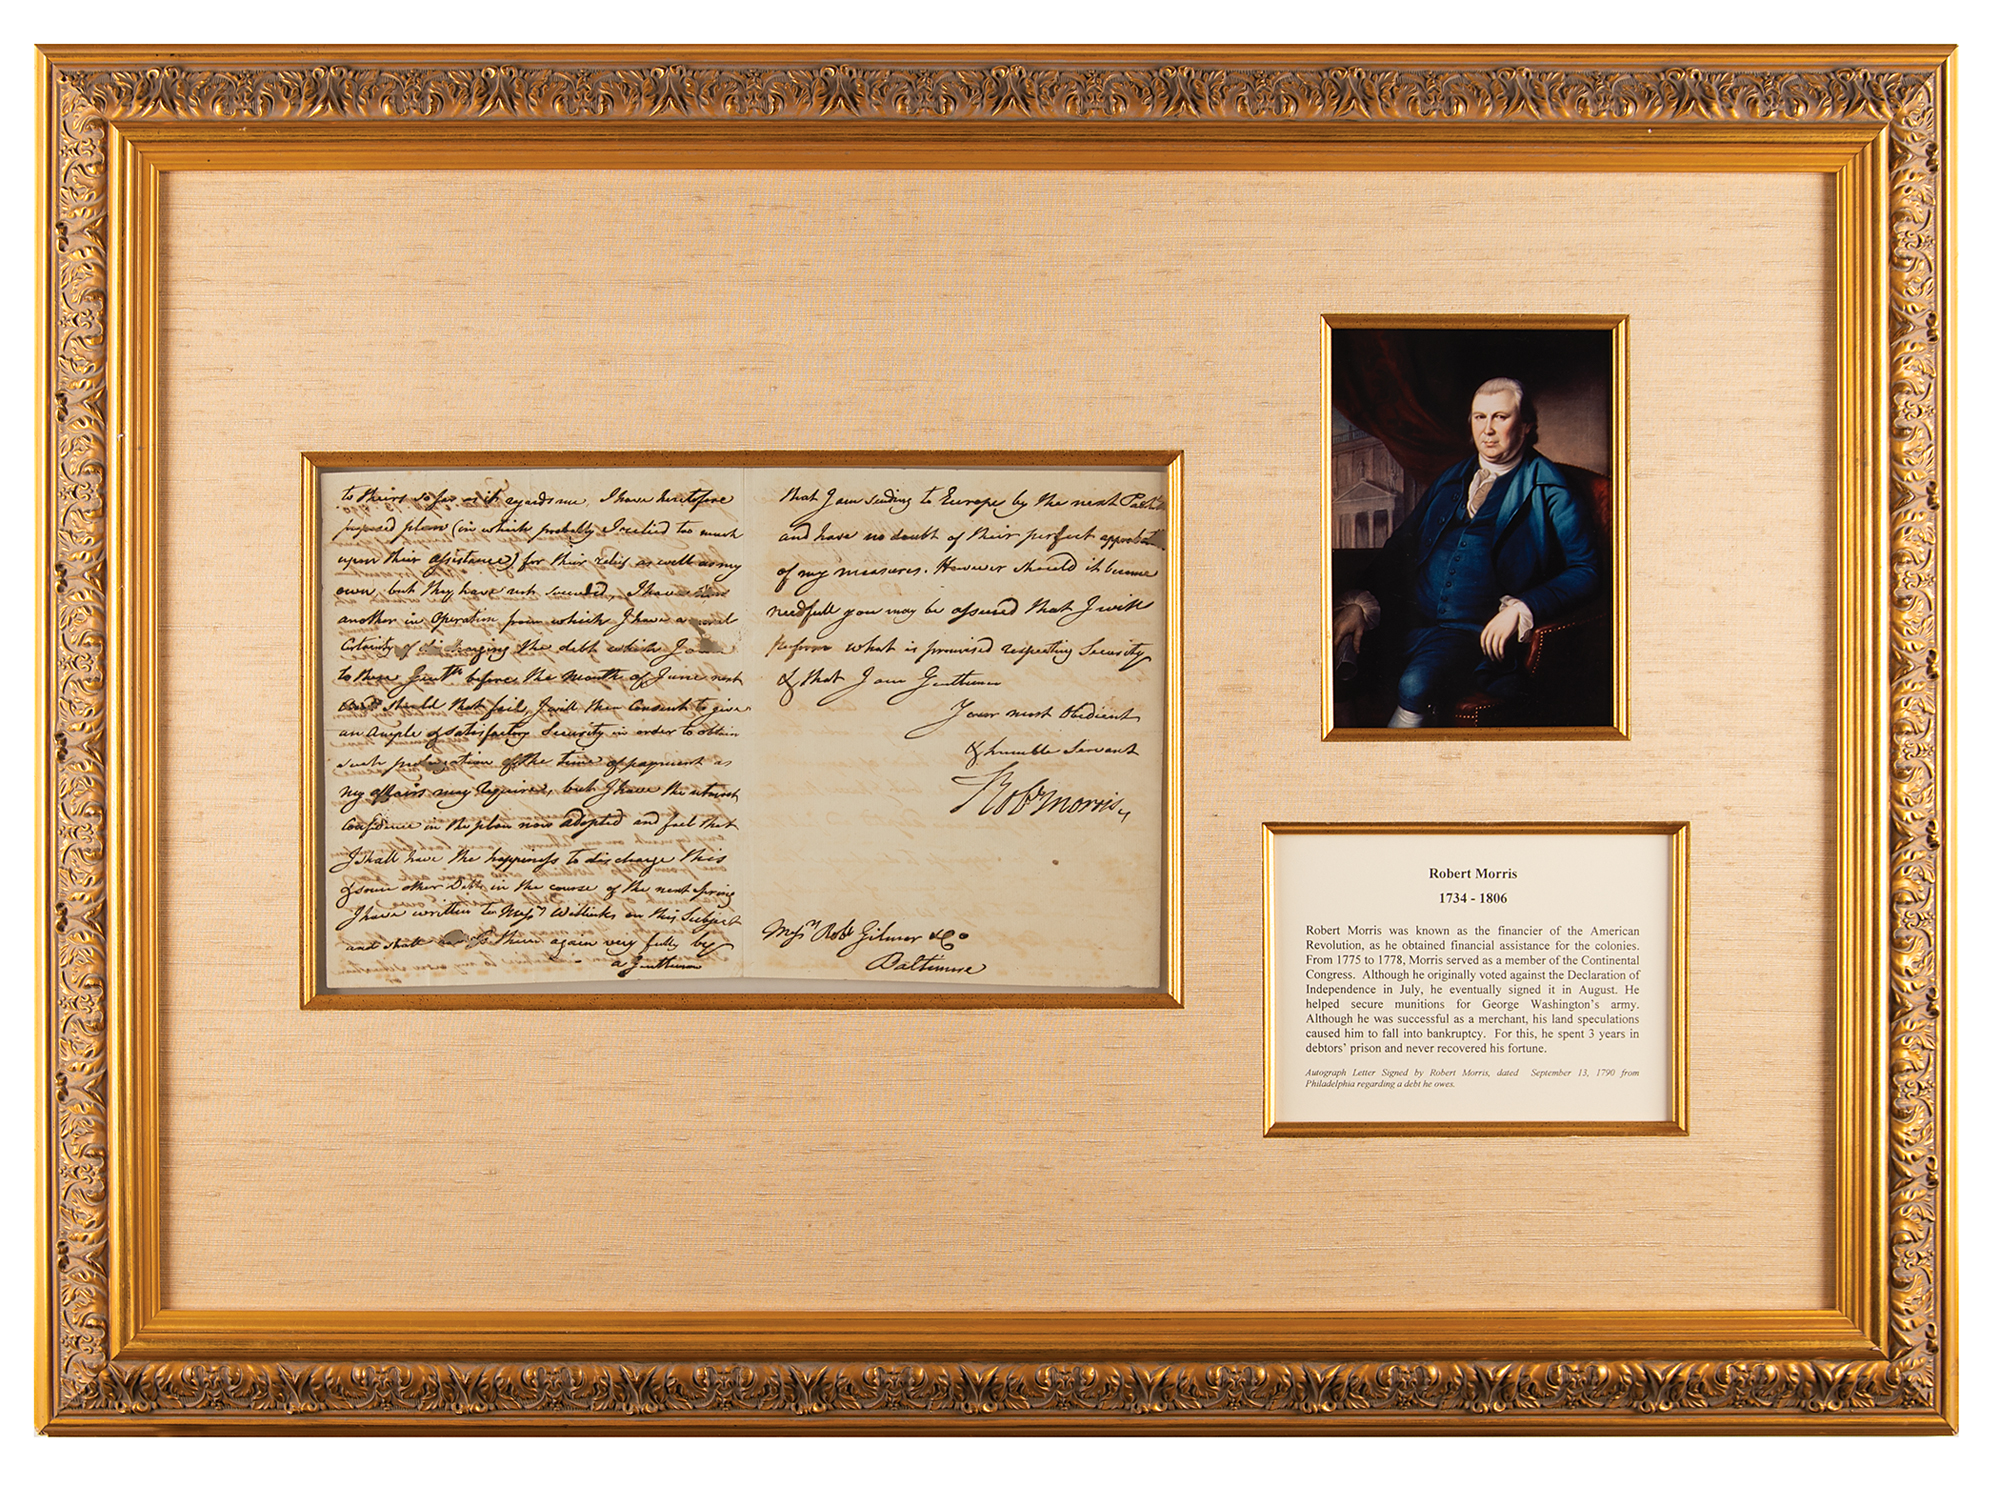 to theirs so far as it regards me, I have heretofore
proposed plans (in which probably I relied too much
upon their assistance) for their relief as well as my
own, but they have not succeeded, I have
another in Operation from which I have a
Certainty of the debt which I
to those Gentn before the Month of June next
should that fail, I will then Consent to give
an Ample & satisfactory Security in order to obtain
such of the time of payment as
my affairs may require, but I have the utmost
Confidence in the plan now adopted and feel that
I shall have the happiness to discharge this
& some other Debts in the course of the next Spring
I have written to Messrs Willinks on this Subject
and shall them again very fully by
a Gentleman
that I am sending to Europe by the next
and have no doubt of their perfect
of my measures. However should it become
needfull you may be assured that I will
perform what is promised respecting Security
& that I am Gentlemen
Your most Obedient
& humble Servant
Robt Morris
Messrs Robt Gilmor & Co
Baltimore
Robert Morris
1734 - 1806
Robert Morris was known as the financier of the American
Revolution, as he obtained financial assistance for the colonies.
From 1775 to 1778, Morris served as a member of the Continental
Congress. Although he originally voted against the Declaration of
Independence in July, he eventually signed it in August. He
helped secure munitions for George Washington's army.
Although he was successful as a merchant, his land speculations
caused him to fall into bankruptcy. For this, he spent 3 years in
debtors' prison and never recovered his fortune.
Autograph Letter Signed by Robert Morris, dated September 13, 1790 from
Philadelphia regarding a debt he owes.